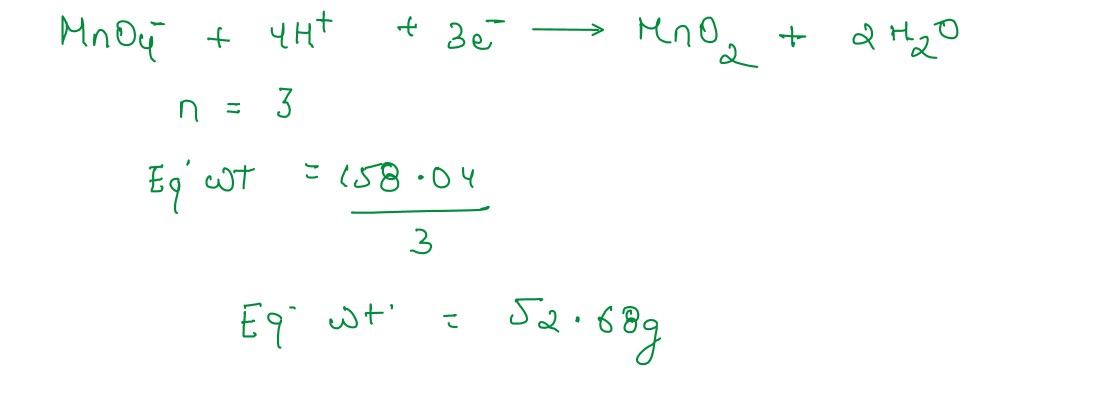 MnO₄⁻ + 4H⁺ + 3e⁻ → MnO₂ + 2H₂O
n = 3
Eq· wt = 158.04
3
Eq· wt· = 52.68g